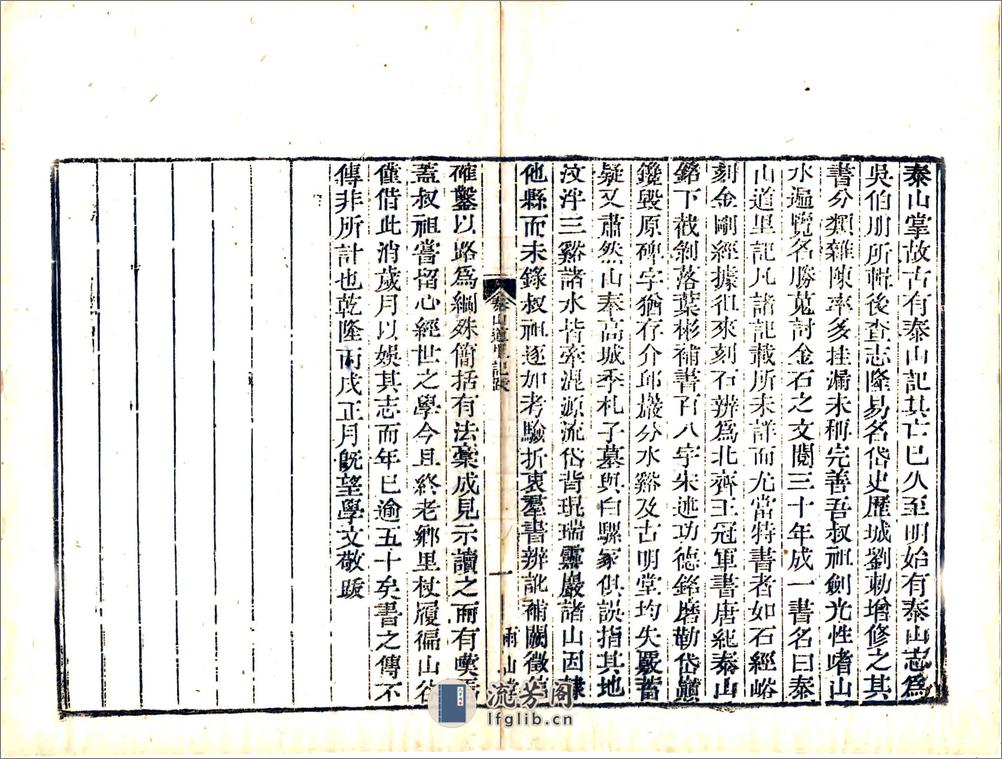 泰山掌故古有泰山記其亡已久至明始有泰山志爲
吳伯朋所輯後查志隆易名岱史歷城劉勅增修之其
書分類雜陳率多挂漏未稱完善吾叔祖劍光性嗜山
水遍覽名勝蒐討金石之文閱三十年成一書名曰泰
山道里記凡諸記載所未詳而尤當特書者如石經峪
刻金剛經據徂來刻石辨爲北齊王冠軍書唐紀泰山
銘下截剝落葉彬補書百八字宋述功德銘磨勒岱巔
鑱毀原碑字猶存介邱巖分水谿及古明堂均失嚴
疑又肅然山奉高城季札子墓與白騾冢俱誤指其地
汶泮三谿諸水皆牽混源流岱背琨瑞靈巖諸山因隸
他縣而未錄叔祖逐加考驗折衷羣書辨訛補闕徵
泰山道里記跋
一
雨山堂
確鑿以路爲綱殊簡括有法稾成見示讀之而有嘆焉
蓋叔祖嘗留心經世之學今且終老鄉里杖履徧山谷
僅借此消歲月以娛其志而年已逾五十矣書之傳不
傳非所計也乾隆丙戌正月旣望學文敬跋
流芳阁
lfglib.cn